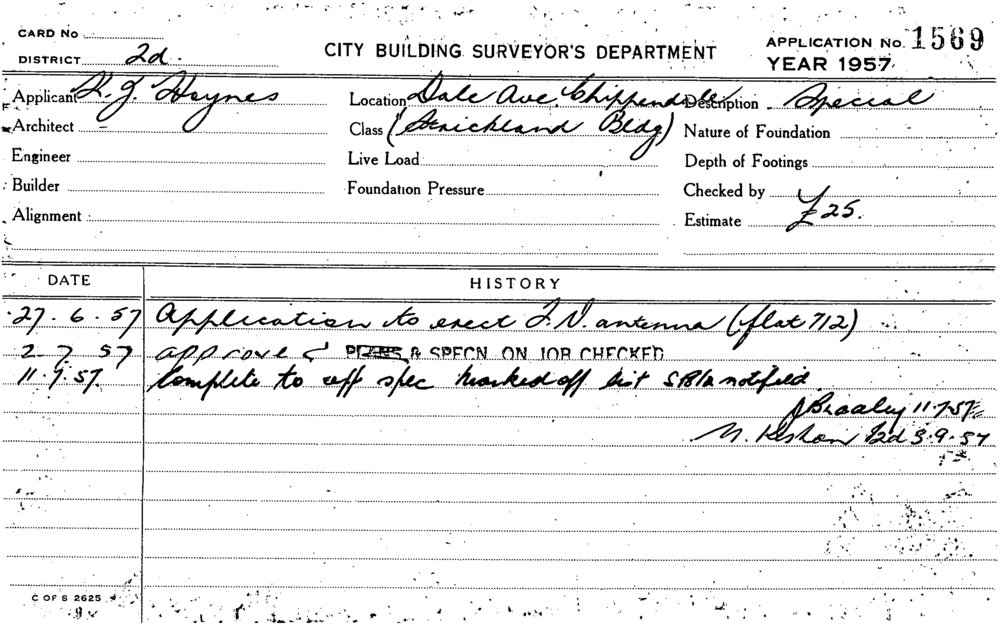 CARD No
DISTRICT 2d.
CITY BUILDING SURVEYOR'S DEPARTMENT
APPLICATION No. 1569
YEAR 1957
Applicant K. J. Haynes
Location Dale Ave. Chippendale
Description Special
Architect -
Class (Strickland Bldg)
Nature of Foundation
Engineer
Live Load
Depth of Footings
Builder
Foundation Pressure
Checked by
Alignment
Estimate £25.
DATE
HISTORY
27. 6. 57 Application to erect T.V. antenna (flat 712)
2. 7. 57 approve PLANS & SPECN. ON JOB CHECKED
11.7.57. Complete to spec marked off list notified.
11.7.57
12d 3.9.57
C OF S 2625